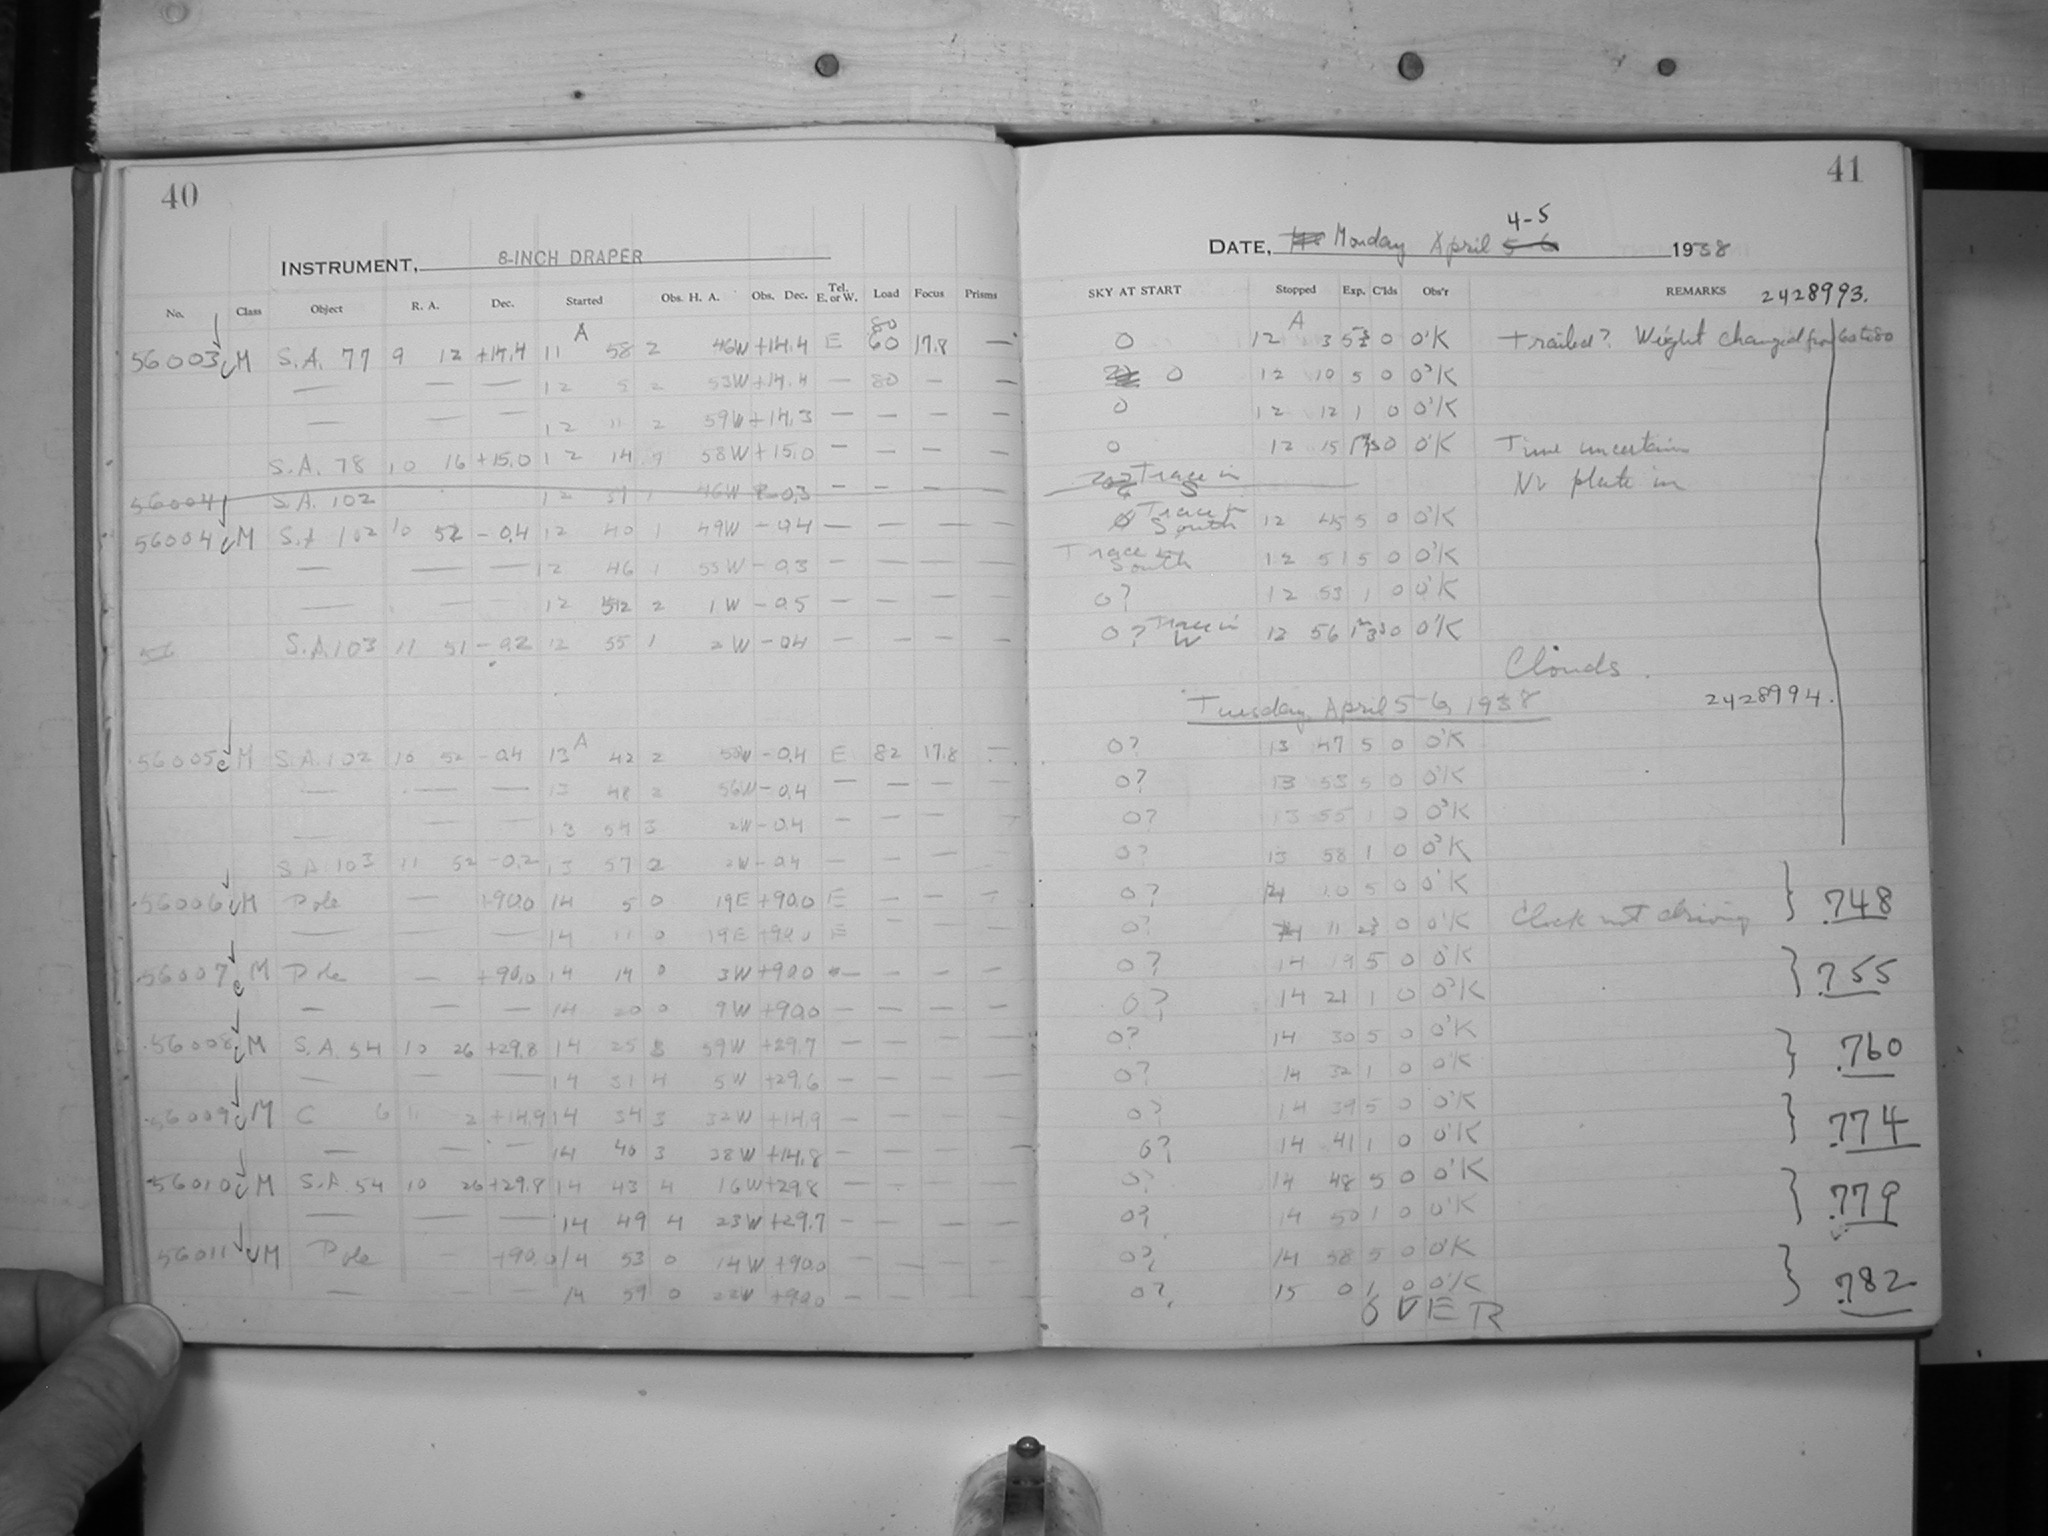 40
INSTRUMENT, 8-INCH DRAPER
No. Class Object R. A. Dec. Started Obs. H. A. Obs. Dec. Tel. E. or W. Load Focus Prisms
56003 M S.A. 77 9 12 +14.4 11 A 58 2 46W +14.4 E 80 60 17.8 —
— — — 12 5 2 53W +14.4 — 80 — —
— — — 12 11 2 59W +14.3 — — — —
S.A. 78 10 16 +15.0 12 14 58W +15.0 — — — —
56004 S.A. 102 12 46W -0.3
56004 M S.A 102 10 52 -0.4 12 40 1 49W -0.4 — — — —
— — — 12 46 1 55W -0.3 — — — —
— — — 12 2 1W -0.5 — — — —
S.A. 103 11 51 -0.2 12 55 1 2W -0.4 — — — —
56005 M S.A. 102 10 52 -0.4 13 A 42 2 50W -0.4 E 82 17.8 —
— — — 13 48 2 56W -0.4 — — — —
— — — 13 54 3 2W -0.4 — — — —
S.A. 103 11 52 -0.2 13 57 2 2W -0.4 — — — —
56006 M Pole — +90.0 14 5 0 19E +90.0 E — — —
— — — 14 11 0 19E +90.0 E — — —
56007 M Pole — +90.0 14 14 0 3W +90.0 — — — —
— — — 14 20 0 9W +90.0 — — — —
56008 M S.A. 54 10 26 +29.8 14 25 3 59W +29.7 — — — —
— — — 14 31 4 5W +29.6 — — — —
56009 M C 6 11 2 +14.9 14 34 3 32W +14.9 — — — —
— — — 14 40 3 38W +14.8 — — — —
56010 M S.A. 54 10 26 +29.8 14 43 4 16W +29.8 — — — —
— — — 14 49 4 23W +29.7 — — — —
56011 M Pole — +90.0 14 53 0 14W +90.0 — — — —
— — — 14 59 0 22W +90.0 — — — —
41
DATE, Monday April 5-6 4-5 1938
SKY AT START Stopped Exp. C'lds Obs'r REMARKS 2428993.
0 12 A 3 0 O'K Trailed? Weight changed from 60 to 80
0 12 10 5 0 O'K
0 12 12 1 0 O'K
0 12 15 0 O'K Time uncertain
Trace in S No plate in
Trace South 12 45 5 0 O'K
Trace in South 12 51 5 0 O'K
0? 12 53 1 0 O'K
0? Trace in W 12 56 0 O'K
Clouds.
Tuesday, April 5-6, 1938 2428994.
0? 13 47 5 0 O'K
0? 13 53 5 0 O'K
0? 13 55 1 0 O'K
0? 13 58 1 0 O'K
0? 14 10 5 0 O'K
.748
0? 14 11 0 O'K Clock not driving
0? 14 19 5 0 O'K
.755
0? 14 21 1 0 O'K
0? 14 30 5 0 O'K
.760
0? 14 32 1 0 O'K
0? 14 39 5 0 O'K
.774
0? 14 41 1 0 O'K
0? 14 48 5 0 O'K
.779
0? 14 50 1 0 O'K
0? 14 58 5 0 O'K
.782
0? 15 0 1 0 O'K
OVER